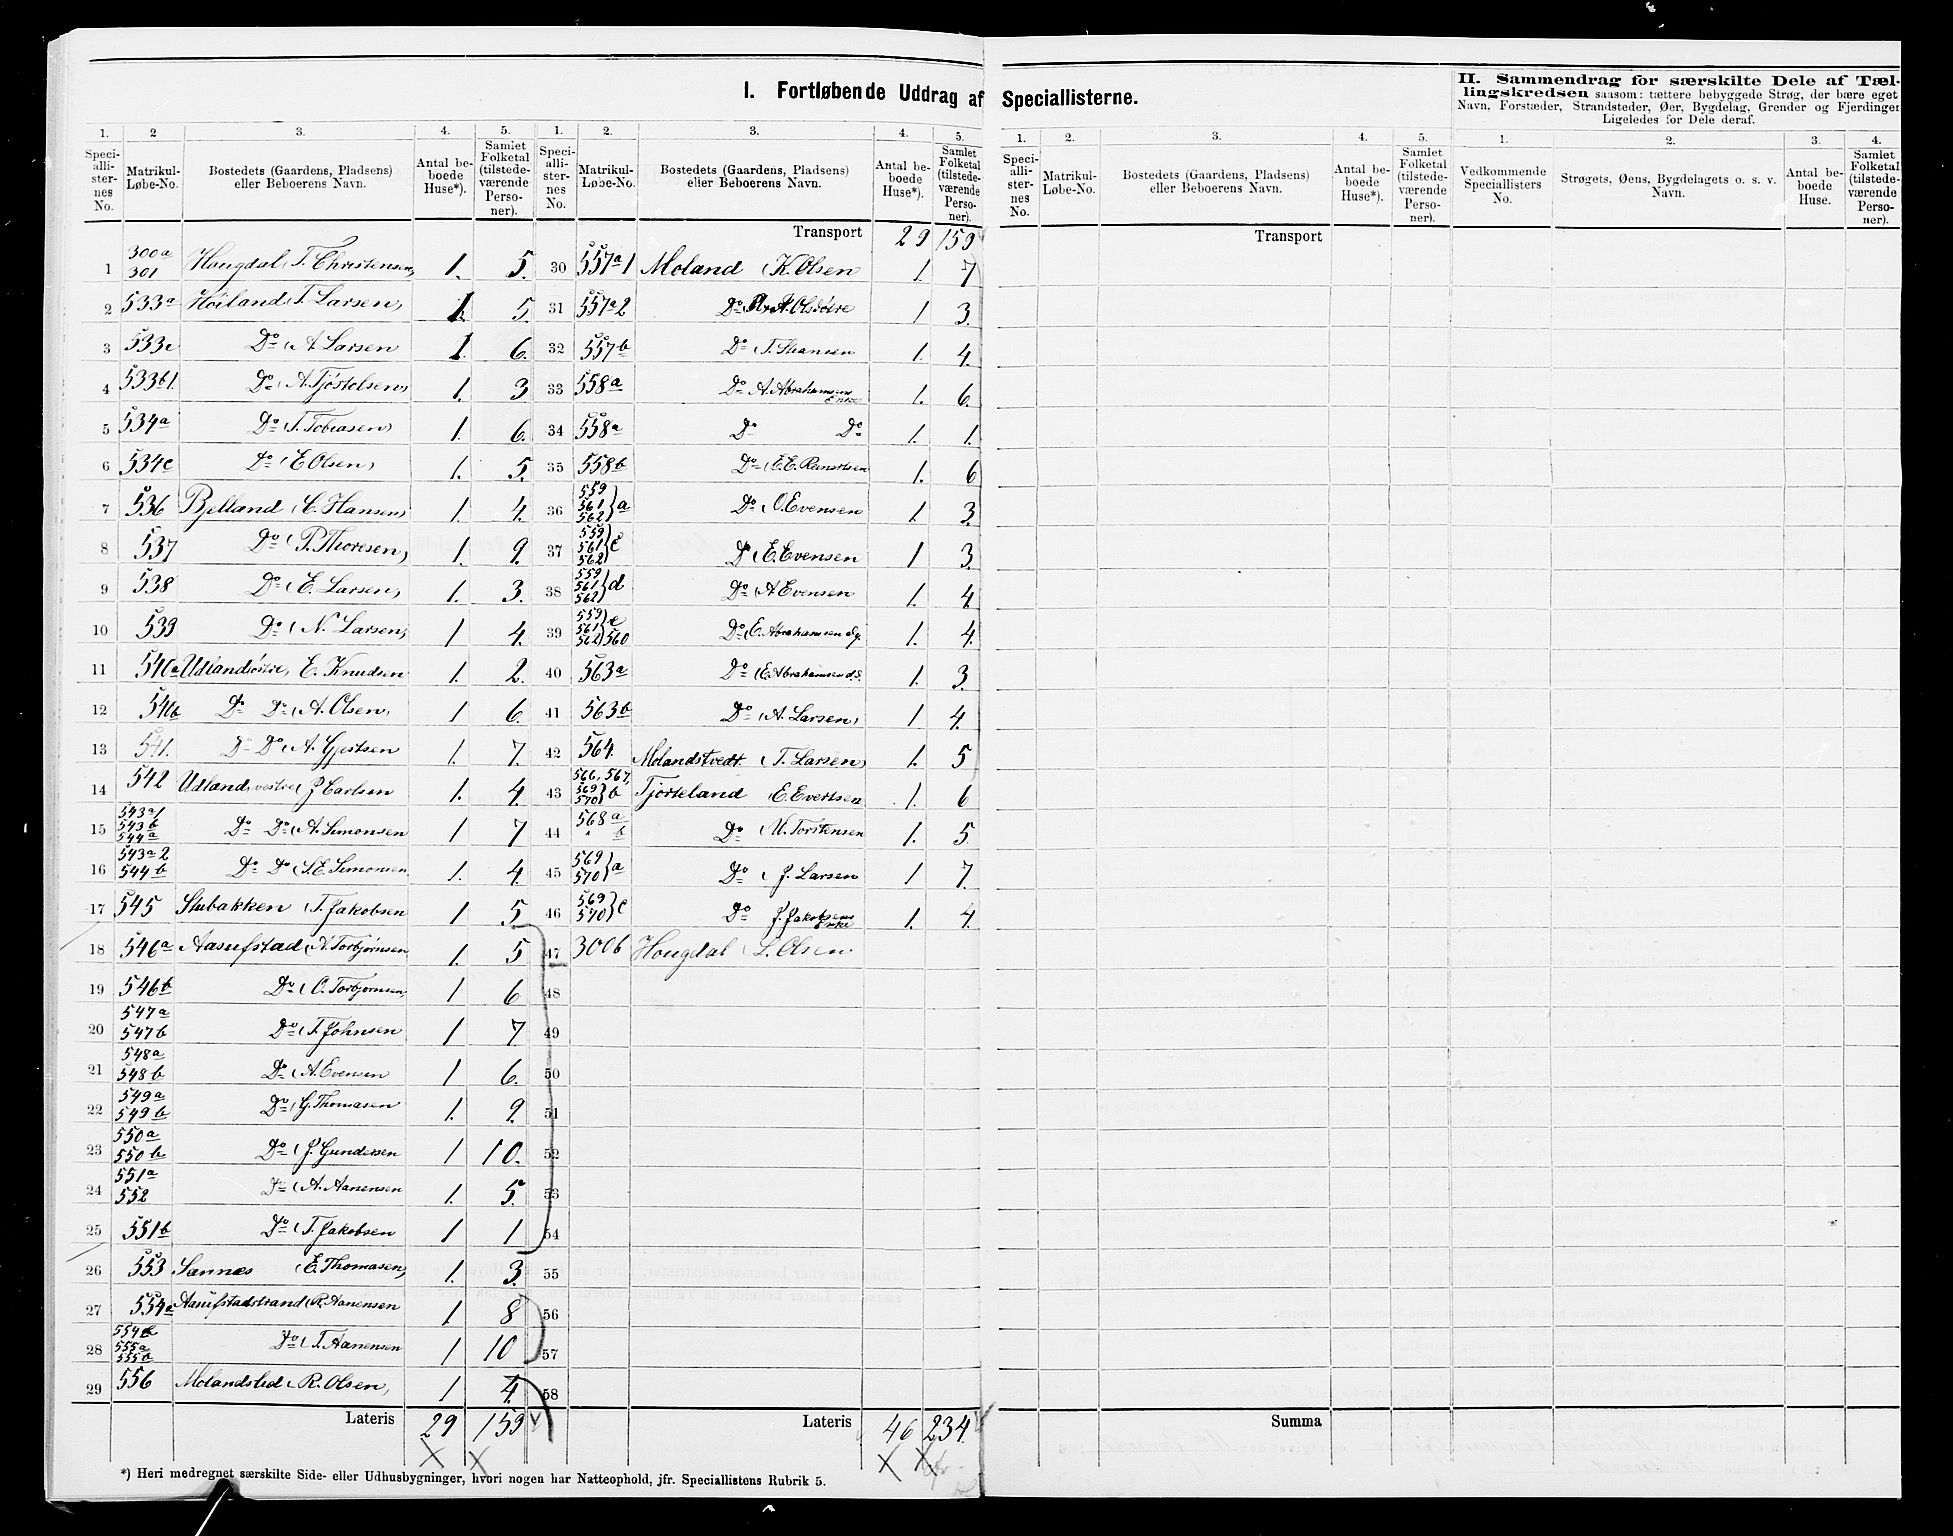 I. Fortløbende Uddrag af Speciallisterne.
II. Sammendrag for særskilte Dele af Tæl-
lingskredsen saasom: tættere bebyggede Strøg, der bære eget
Navn, Forstæder, Strandsteder, Øer, Bygdelag, Grender og Fjerdinger
Ligeledes for Dele deraf.
1. 2 3. 4. 5. 1. 2. 3. 4. 5. 1. 2. 3. 4. 5. 1. 2. 3. 4.
Speci-alli-ster-nes No. Matrikul-Løbe-No. Bostedets (Gaardens, Pladsens) eller Beboerens Navn. Antal be-boede Huse*). Samlet Folketal (tilstede-værende Perso-ner).
Speci-alli-ster-nes No. Matrikul-Løbe-No. Bostedets (Gaardens, Pladsens) eller Beboerens Navn. Antal be-boede Huse*). Samlet Folketal (tilstede-værende Perso-ner).
Speci-alli-ster-nes No. Matrikul-Løbe-No. Bostedets (Gaardens, Pladsens) eller Beboerens Navn. Antal be-boede Huse*). Samlet Folketal (tilstede-værende Perso-ner).
Vedkommende Speciallisters No. Strøgets, Øens, Bygdelagets o. s. v. Navn. Antal be-boede Huse. Samlet Folketal (tilstede-værende Perso-ner).
1 300a 301 Hougdal T. Christensen, 1. 5.
2 533a Høiland T. Larsen, 1. 5.
3 533c Do A. Larsen 1. 6.
4 533b1. Do A. Tjöstolsen, 1. 3
5 534a Do T. Tobiasen, 1. 6.
6 534c Do E Olsen, 1. 5.
7 536 Bjelland C. Hansen, 1. 4.
8 537 Do P. Thoresen, 1. 9.
9 538 Do E. Larsen, 1. 3.
10 539 Do N. Larsen, 1 4.
11 540a Udlandöstre, E. Knudsen 1. 2.
12 540b Do Do A. Olsen, 1 6.
13 541. Do Do A. Gjertsen 1. 7.
14 542 Udland vestre J Carlsen 1. 4.
15 543a1 543b 544a Do Do A. Simonsen 1 7
16 543a2 544b Do Do S. E. Simonsen 1. 4.
17 545 Stubakken T. Jakobsen 1 5
18 546a Aasufstad N. Torbjörnsen 1. 5
19 546b Do O. Torbjornsen, 1 6
20 547a 547b Do T. Johnsen 1 7
21 548a 548b Do A. Evensen 1 6.
22 549a 549b Do G. Thomasen 1. 9.
23 550a 550b Do J. Gundersen 1 10.
24 551a 552 Do A. Aanensen 1. 5.
25 551b Do T. Jakobsen 1 1
26 553 Sannæs E. Thomasen, 1. 3.
27 554a Aasufstadstrand R. Aanensen 1 8
28 554b 555a 555b Do T. Aanensen 1 10
29 556 Molandsted R. Olsen, 1 4.
Lateris 29 159
Transport 29 159
30 557a1 Moland K. Olsen 1. 7
31 557a2 Do A. Olsdötre 1 3.
32 557b Do T. Stiansen 1. 4.
33 558a Do A. Abrahamsens Enke 1. 6.
34 558a Do Do 1. 1.
35 558b Do E. E. Reinertsen 1. 6
36 559 561 562 a Do O. Evensen 1. 3.
37 559 561 562 c Do E. Evensen 1 3.
38 559 561 562 d Do A Evensen 1. 4.
39 559 561 562 e 560 Do E. Abrahamsen d.y. 1. 4.
40 563a Do E. Abrahamsen d.æ. 1. 3.
41 563b Do A. Larsen, 1 4.
42 564. Molandstvedt T. Larsen, 1. 5
43 566, 567, 569 570 b Tjorteland E. Evertsen 1. 6
44 568a " b Do N. Torstensen 1. 5.
45 569 570 a Do J. Larsen 1 7.
46 569 570 c Do J. Jakobsens Enke 1. 4.
47 300b Hougdal L. Olsen
48
49
50
51
52
53
54
55
56
57
58
Lateris 46 234
Transport
Summa
*) Heri medregnet særskilte Side- eller Udhusbygninger, hvori nogen har Natteophold, jfr. Speciallistens Rubrik 5.